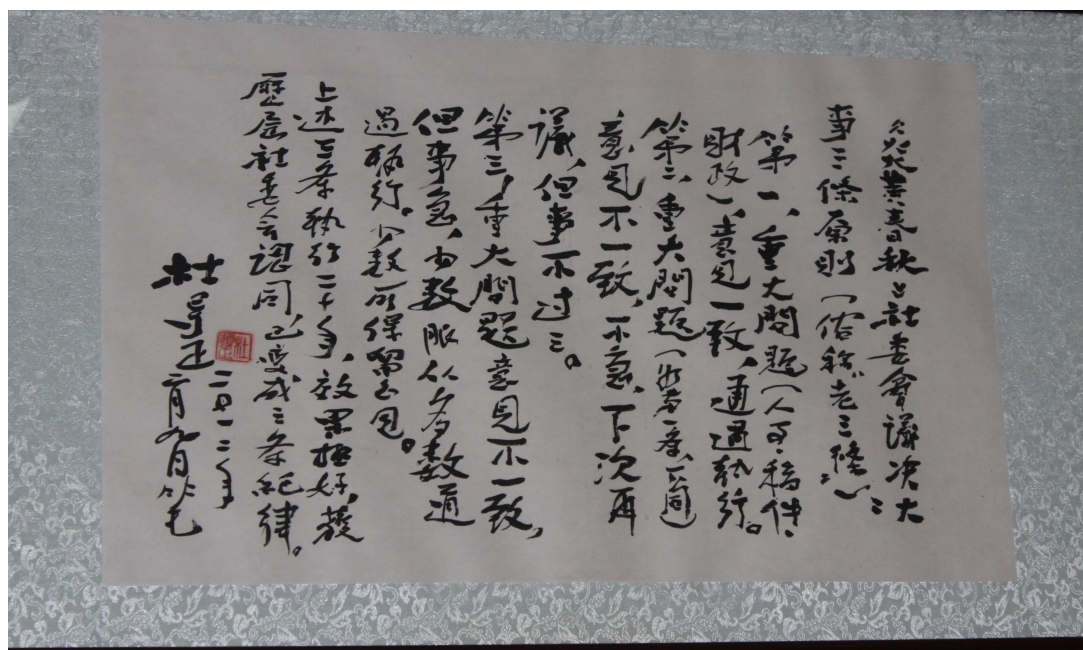 炎黄春秋社委會議决大
事三條原則（俗称老三條）：
第一、重大問題（人事、稿件、
財政）、意見一致，通過執行。
第二、重大問題
意見不一致，不急，下次再
議，但事不过三。
第三，重大問題意見不一致，
但事急，少数服从多数通
過執行。少数可保留意見。
上述三条執行二十年，效果極好，
歷屆社委会認同已變成三条紀律。
杜導正
二〇一二年
二月九日
杜導